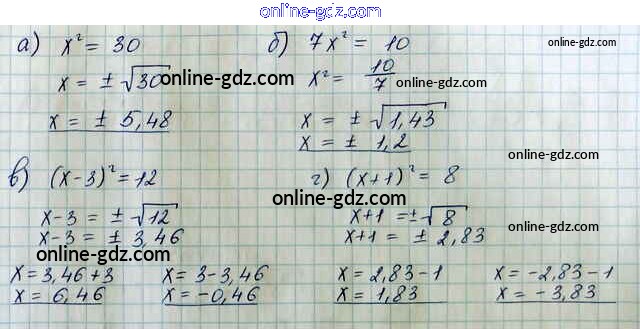 online-gdz.com
а) x² = 30
x = ± √30
x = ± 5,48
б) 7x² = 10
x² = 10/7
x = ± √1,43
x = ± 1,2
online-gdz.com
online-gdz.com
online-gdz.com
в) (x-3)² = 12
x-3 = ± √12
x-3 = ± 3,46
x = 3,46+3
x = 6,46
x = 3-3,46
x = -0,46
г) (x+1)² = 8
x+1 = ± √8
x+1 = ± 2,83
x = 2,83-1
x = 1,83
x = -2,83-1
x = -3,83
online-gdz.com
online-gdz.com
online-gdz.com
online-gdz.com